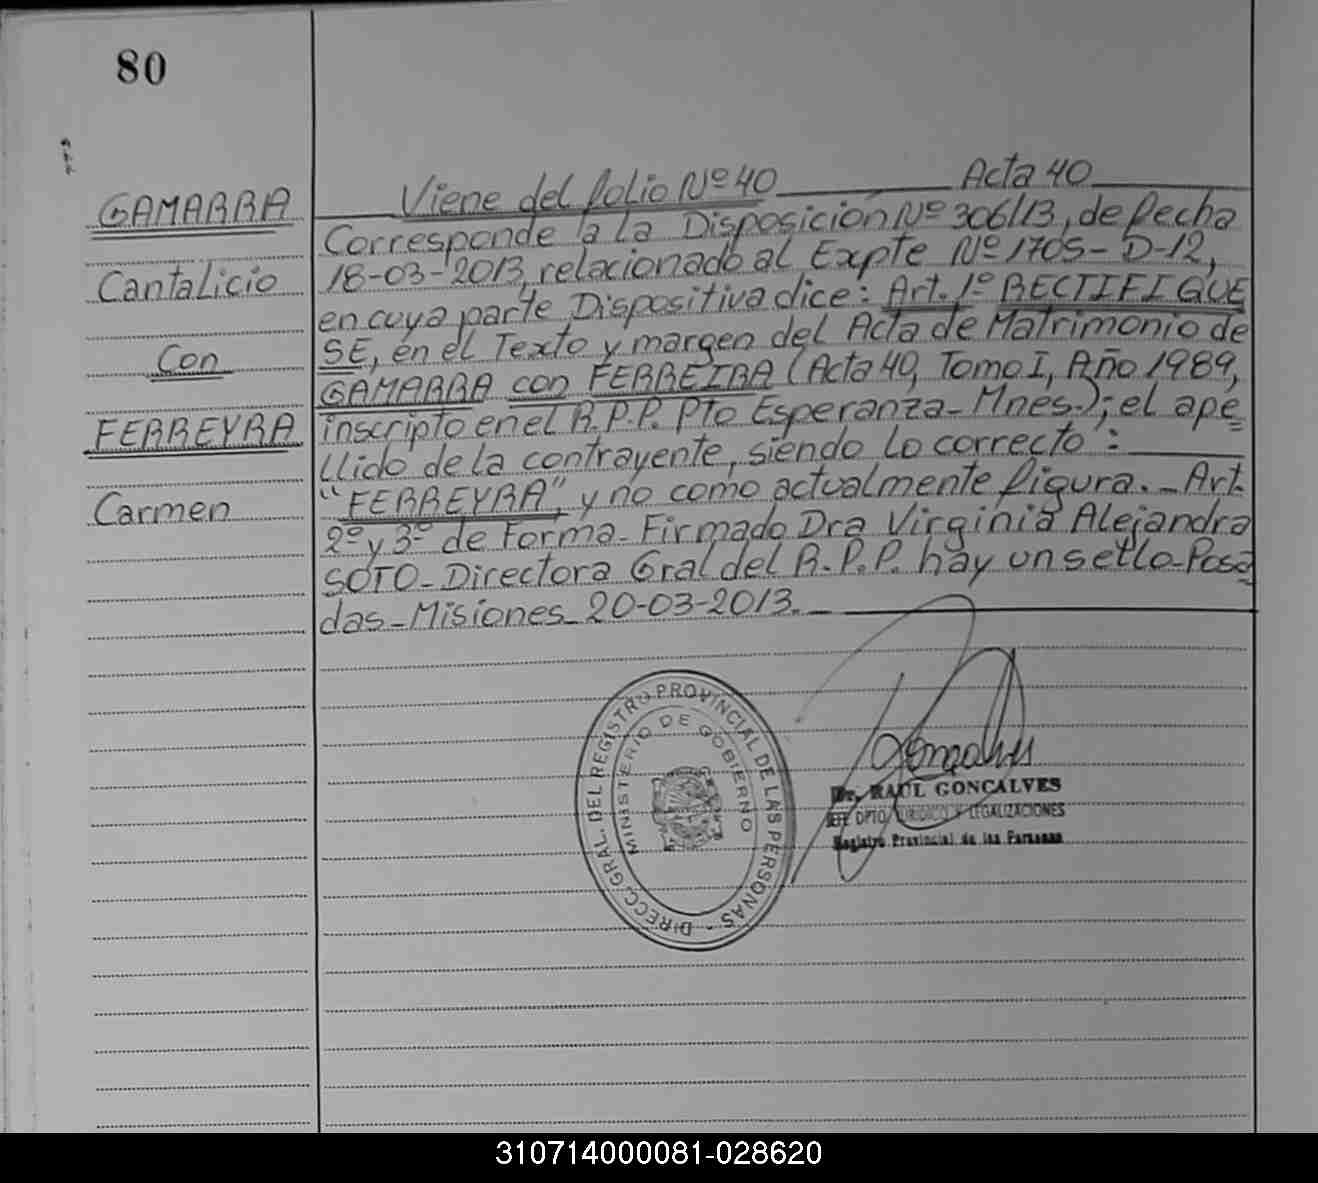 80
GAMARRA
Cantalicio
Con
FERREYRA
Carmen
Viene del folio Nº 40 Acta 40
Corresponde a la Disposición Nº 306/13, de fecha
18-03-2013, relacionado al Expte Nº 1705-D-12,
en cuya parte Dispositiva dice: Art. 1º RECTIFIQUE
SE, en el Texto y margen del Acta de Matrimonio de
GAMARRA con FERREIRA (Acta 40, Tomo I, Año 1989,
inscripto en el R.P.P. Pto Esperanza-Mnes.); el ape=
llido de la contrayente, siendo lo correcto:
"FERREYRA", y no como actualmente figura._Art.
2º y 3º de Forma-Firmado Dra Virginia Alejandra
SOTO-Directora Gral del R.P.P. hay un sello-Posa=
das-Misiones 20-03-2013._
DIRECC. GRAL. DEL REGISTRO PROVINCIAL DE LAS PERSONAS -
MINISTERIO DE GOBIERNO
Goncalves
Dr. RAUL GONCALVES
JEFE DPTO. JURIDICO Y LEGALIZACIONES
Registro Provincial de las Personas
310714000081-028620